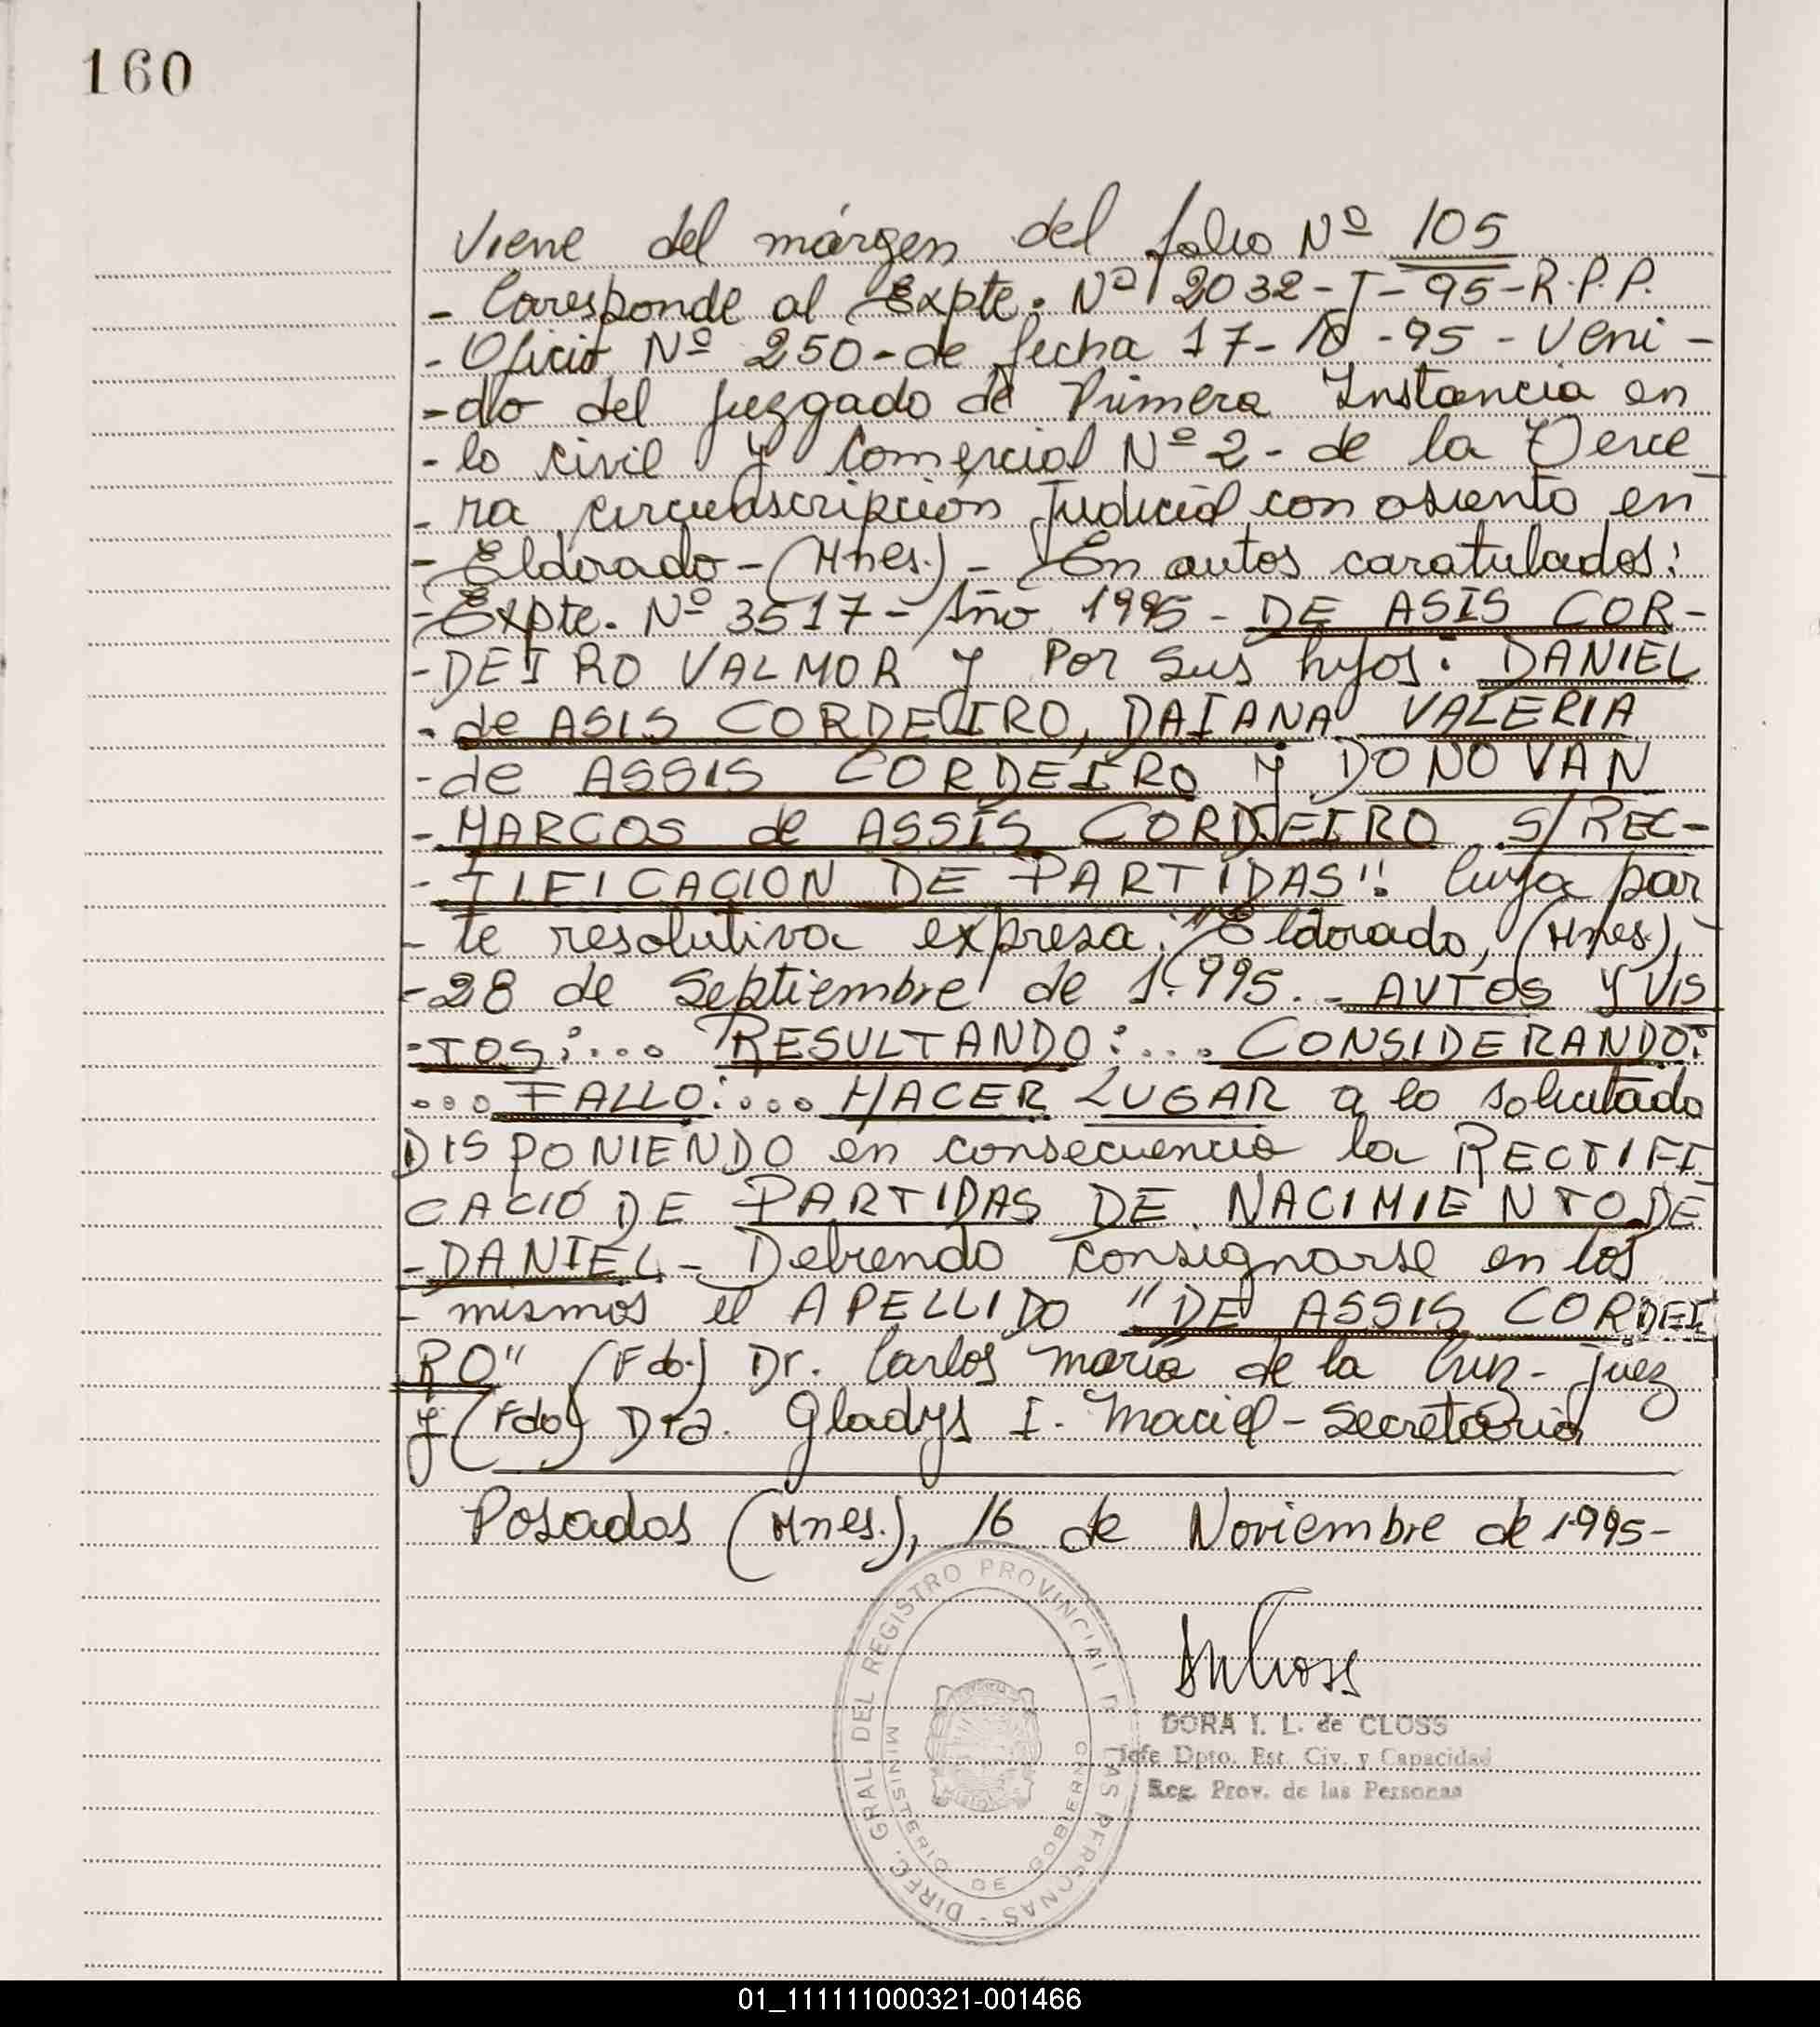 160
Viene del márgen del folio Nº 105
- Corresponde al Expte. Nº 2032-T-95-R.P.P.
- Oficio Nº 250-de fecha 17-10-95-Veni-
-do del Juzgado de Primera Instancia en
-lo civil y Comercial Nº 2- de la Terce
-ra circunscripción Judicial con asiento en
-Eldorado-(Mnes.)- En autos caratulados:
-Expte. Nº 3517-Año 1995- DE ASIS COR-
-DEIRO VALMOR y Por sus hijos: DANIEL
-de ASIS CORDEIRO, DAIANA VALERIA
-de ASSIS CORDEIRO y DONOVAN
-MARCOS de ASSIS CORDEIRO S/REC-
-TIFICACION DE PARTIDAS". Cuya par
-te resolutiva expresa: "Eldorado, (Mnes.),-
-28 de Septiembre de 1.995.- AUTOS Y VIS
-TOS:... RESULTANDO:... CONSIDERANDO:
...FALLO:... HACER LUGAR a lo solicitado
DISPONIENDO en consecuencia la RECTIFI
CACIÓ DE PARTIDAS DE NACIMIENTO DE
-DANIEL- Debiendo consignarse en los
- mismos el APELLIDO "DE ASSIS CORDEI
RO" (Fdo.) Dr. Carlos maría de la Cruz- Juez
y (Fdo) Dra. Gladys I. Maciel-Secretaria
Posadas (Mnes.), 16 de Noviembre de 1.995-
DIREC. GRAL. DEL REGISTRO PROVINCIAL DE LAS PERSONAS -
MINISTERIO DE GOBIERNO
DORA I. L. de CLOSS
Jefe Dpto. Est. Civ. y Capacidad
Reg. Prov. de las Personas
01_111111000321-001466